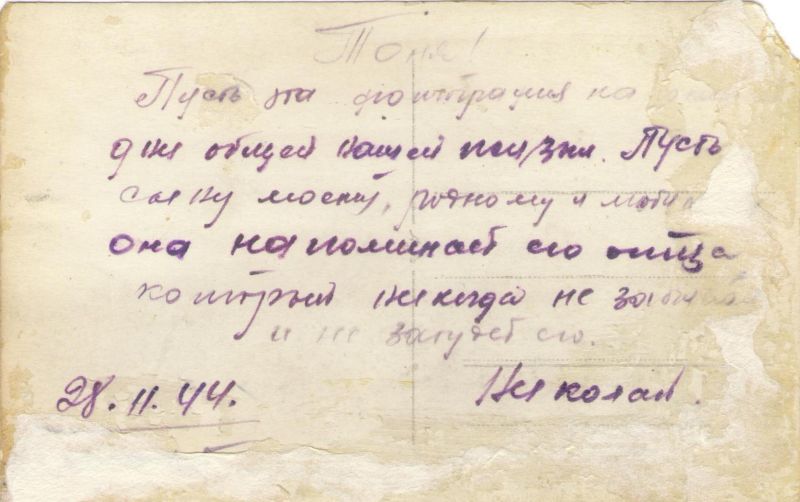 Тоня!
Пусть эта фотография
дни общей нашей жизни. Пусть
сыну моему, родному и
она напоминает его отца
который никогда не
и не забудет его.
28.11.44. Николай.